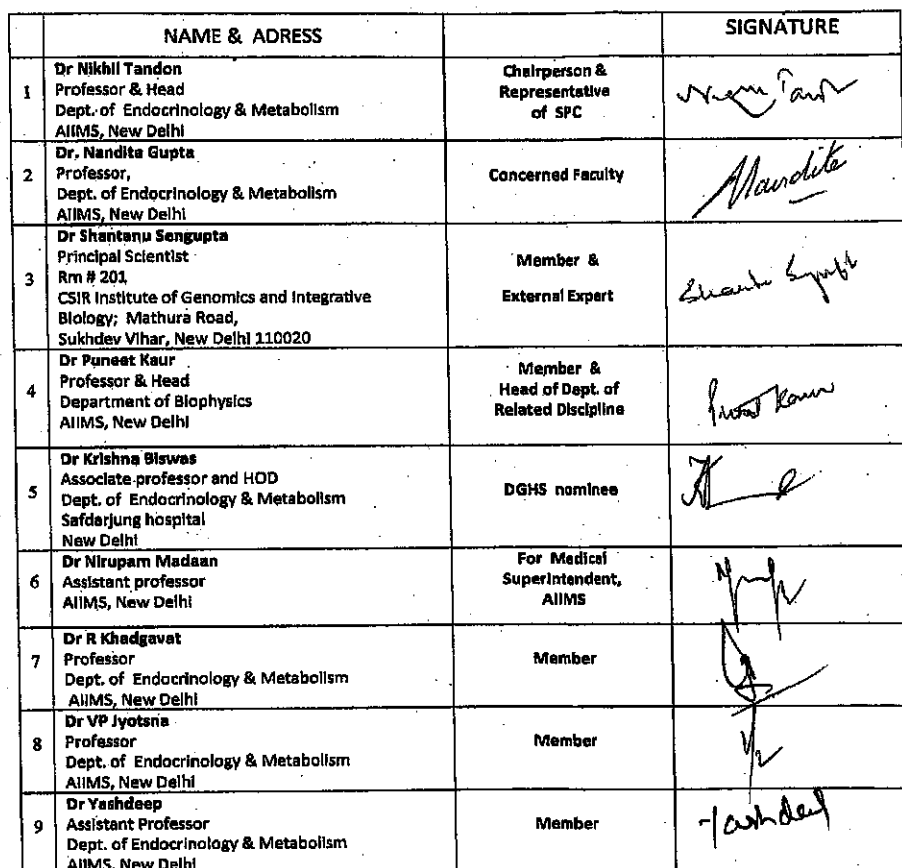 NAME & ADRESS
SIGNATURE
1
Dr Nikhil Tandon
Professor & Head
Dept. of Endocrinology & Metabolism
AIIMS, New Delhi
Chairperson &
Representative
of SPC
2
Dr. Nandita Gupta
Professor,
Dept. of Endocrinology & Metabolism
AIIMS, New Delhi
Concerned Faculty
Nandita
3
Dr Shantanu Sengupta
Principal Scientist
Rm # 201
CSIR Institute of Genomics and Integrative
Biology; Mathura Road,
Sukhdev Vihar, New Delhi 110020
Member &
External Expert
4
Dr Puneet Kaur
Professor & Head
Department of Biophysics
AIIMS, New Delhi
Member &
Head of Dept. of
Related Discipline
Kaur
5
Dr Krishna Biswas
Associate professor and HOD
Dept. of Endocrinology & Metabolism
Safdarjung hospital
New Delhi
DGHS nominee
6
Dr Nirupam Madaan
Assistant professor
AIIMS, New Delhi
For Medical
Superintendent,
AIIMS
7
Dr R Khadgavat
Professor
Dept. of Endocrinology & Metabolism
AIIMS, New Delhi
Member
8
Dr VP Jyotsna
Professor
Dept. of Endocrinology & Metabolism
AIIMS, New Delhi
Member
9
Dr Yashdeep
Assistant Professor
Dept. of Endocrinology & Metabolism
AIIMS, New Delhi
Member
Yashdeep